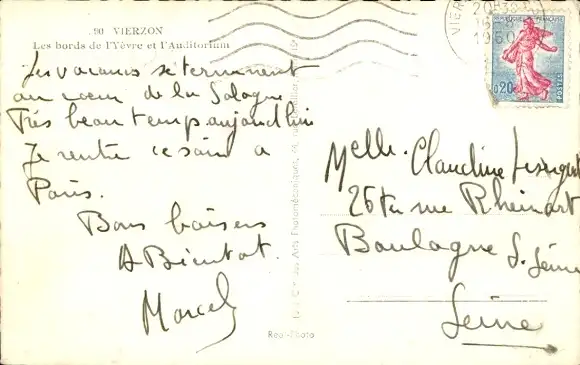 90 VIERZON
Les bords de l'Yèvre et l'Auditorium
Les vacances se terminent
au cœur de la Sologne
Très beau temps aujourd'hui
Je rentre ce soir à
Paris.
Bons baisers
A Bientot.
Marcel
VIER
20H30
1960
FRANÇAISE
0,20
POSTES
Melle. Claudine
26 rue Rheinart
Boulogne S. Seine
Seine
des Arts Photomécaniques
Real-Photo